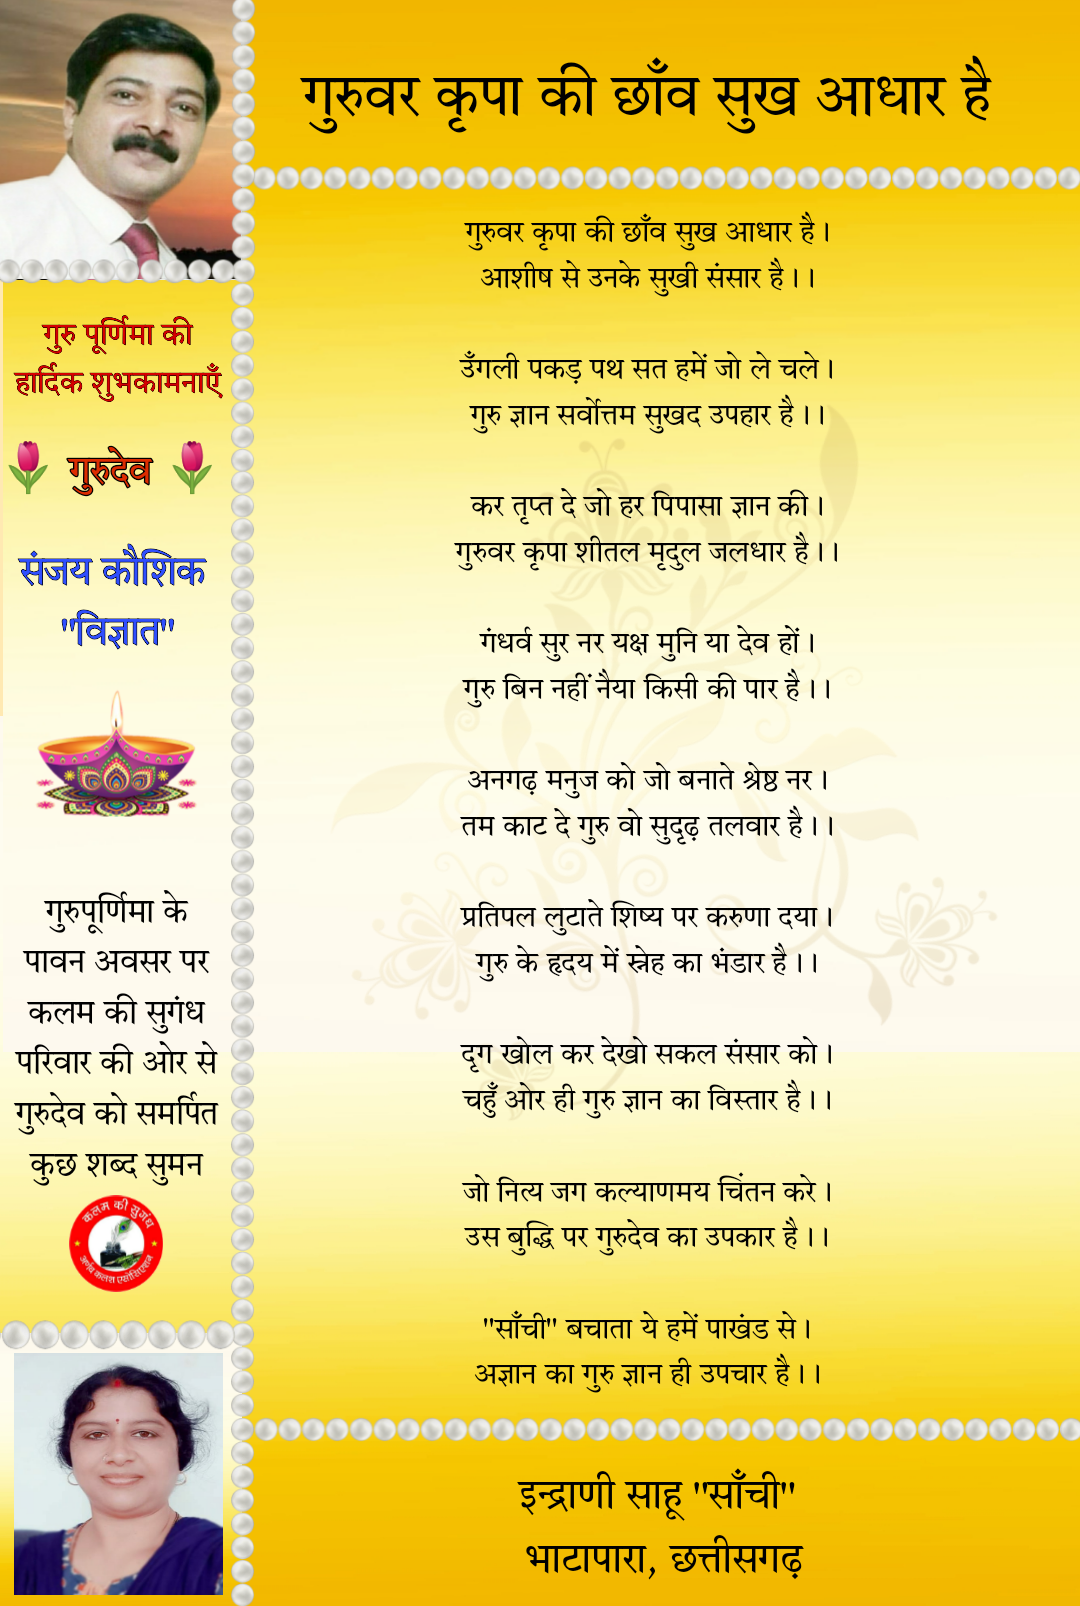 गुरुवर कृपा की छाँव सुख आधार है
गुरुवर कृपा की छाँव सुख आधार है।
आशीष से उनके सुखी संसार है।।
उँगली पकड़ पथ सत हमें जो ले चले।
गुरु ज्ञान सर्वोत्तम सुखद उपहार है।।
कर तृप्त दे जो हर पिपासा ज्ञान की।
गुरुवर कृपा शीतल मृदुल जलधार है।।
गंधर्व सुर नर यक्ष मुनि या देव हों।
गुरु बिन नहीं नैया किसी की पार है।।
अनगढ़ मनुज को जो बनाते श्रेष्ठ नर।
तम काट दे गुरु वो सुदृढ़ तलवार है।।
प्रतिपल लुटाते शिष्य पर करुणा दया।
गुरु के हृदय में स्नेह का भंडार है।।
दृग खोल कर देखो सकल संसार को।
चहुँ ओर ही गुरु ज्ञान का विस्तार है।।
जो नित्य जग कल्याणमय चिंतन करे।
उस बुद्धि पर गुरुदेव का उपकार है।।
"साँची" बचाता ये हमें पाखंड से।
अज्ञान का गुरु ज्ञान ही उपचार है।।
इन्द्राणी साहू "साँची"
भाटापारा, छत्तीसगढ़
गुरु पूर्णिमा की
हार्दिक शुभकामनाएँ
गुरुदेव
संजय कौशिक
"विज्ञात"
गुरुपूर्णिमा के
पावन अवसर पर
कलम की सुगंध
परिवार की ओर से
गुरुदेव को समर्पित
कुछ शब्द सुमन
कलम की सुगंध
अर्णव कलश एसोसिएशन